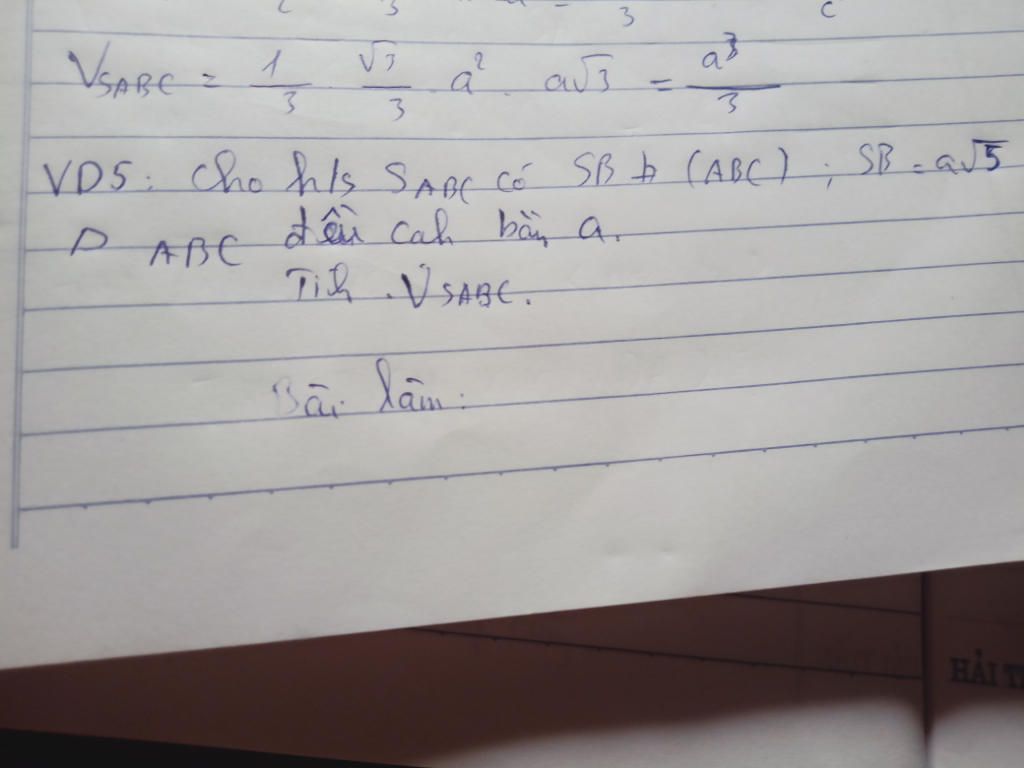 2 3 3 c
V_SABC = 1/3 . √3/3 a² . a√3 = a³/3
VD5: Cho h/s SABC có SB ⊥ (ABC) ; SB = a√5
Δ ABC đều cah bằn a.
Tih . VSABC.
Bài làm:
HẢI T